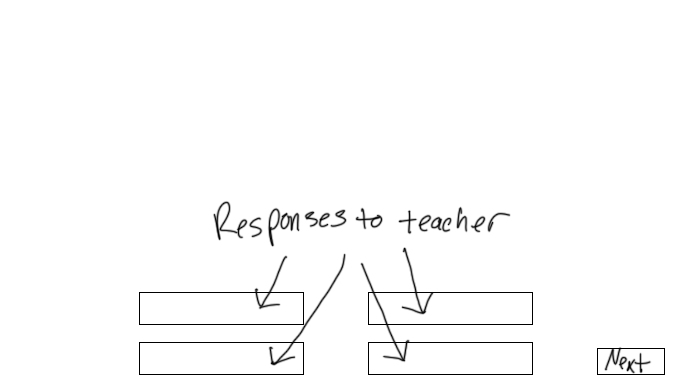 Responses to teacher
Next